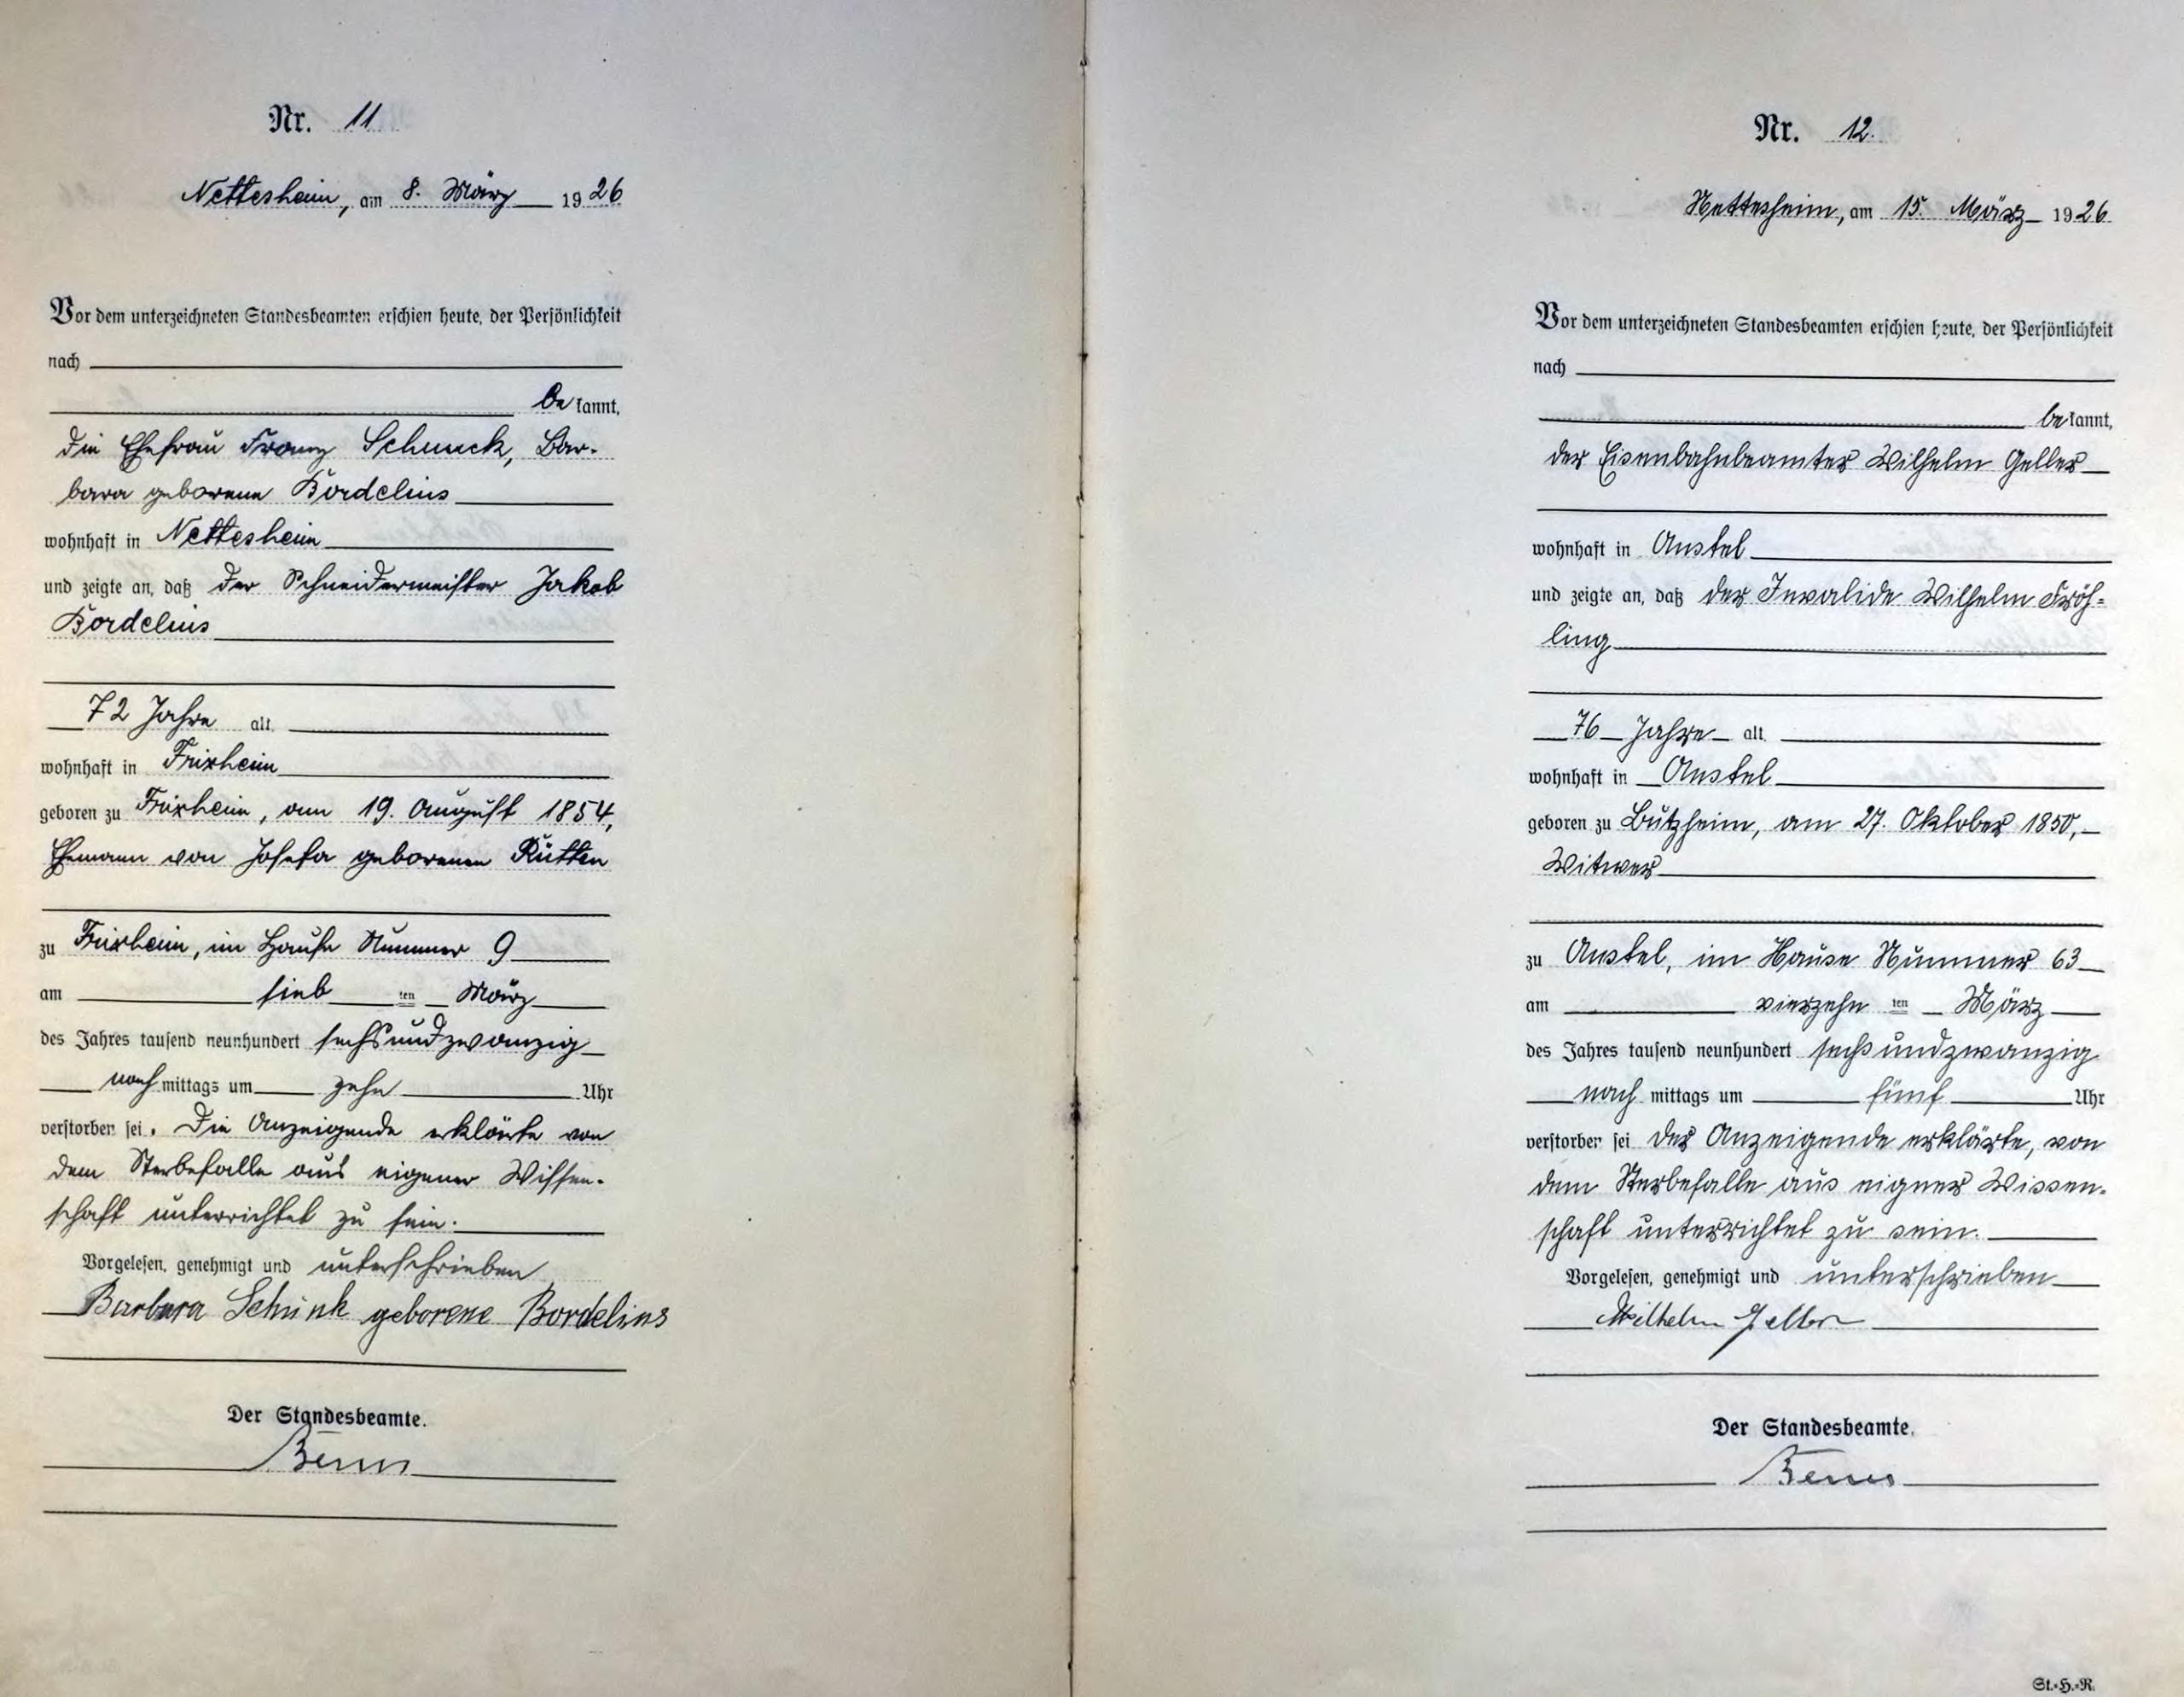 Nr. 11
Nettesheim, am 8. März 1926
Vor dem unterzeichneten Standesbeamten erschien heute, der Persönlichkeit
nach
bekannt,
die Ehefrau Franz Schunck, Bar-
bara geborene Bordelius
wohnhaft in Nettesheim
und zeigte an, daß der Schneidermeister Jakob
Bordelius
72 Jahre alt
wohnhaft in Frixheim
geboren zu Frixheim, am 19. August 1854,
Ehemann von Josefa geborenen Rütten
zu Frixheim, im Hause Nummer 9
am siebten März
des Jahres tausend neunhundert sechsundzwanzig
nachmittags um zehn Uhr
verstorben sei. Die Anzeigende erklärte von
dem Sterbefalle aus eigener Wissen-
schaft unterrichtet zu sein.
Vorgelesen, genehmigt und unterschrieben
Barbara Schunk geborene Bordelius
Der Standesbeamte.
Nr. 12.
Nettesheim, am 15. März 1926
Vor dem unterzeichneten Standesbeamten erschien heute, der Persönlichkeit
nach
bekannt,
der Eisenbahnbeamter Wilhelm Geller
wohnhaft in Anstel
und zeigte an, daß der Invalide Wilhelm Fröh-
ling
76 Jahre alt
wohnhaft in Anstel
geboren zu Butzheim, am 27. Oktober 1850,
Witwer
zu Anstel, im Hause Nummer 63
am vierzehnten März
des Jahres tausend neunhundert sechsundzwanzig
nachmittags um fünf Uhr
verstorben sei. Der Anzeigende erklärte, von
dem Sterbefalle aus eigner Wissen-
schaft unterrichtet zu sein.
Vorgelesen, genehmigt und unterschrieben
Wilhelm Geller
Der Standesbeamte.
St.-H.-R.